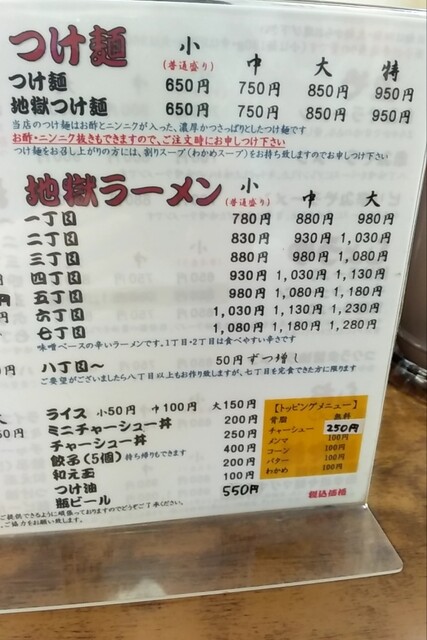 つけ麺 小 中 大 特
(普通盛り)
つけ麺 650円 750円 850円 950円
地獄つけ麺 650円 750円 850円 950円
当店のつけ麺はお酢とニンニクが入った、濃厚かつさっぱりとしたつけ麺です
お酢・ニンニク抜きもできますので、ご注文時にお申しつけ下さい
つけ麺をお召し上がりの方には、割りスープ(わかめスープ)をお持ち致しますのでお申しつけ下さい
地獄ラーメン 小 中 大
(普通盛り)
一丁目 780円 880円 980円
二丁目 830円 930円 1,030円
三丁目 880円 980円 1,080円
四丁目 930円 1,030円 1,130円
五丁目 980円 1,080円 1,180円
六丁目 1,030円 1,130円 1,230円
七丁目 1,080円 1,180円 1,280円
味噌ベースの辛いラーメンです。1丁目・2丁目は食べやすい辛さです
八丁目〜 50円ずつ増し
ご要望がございましたら八丁目以上もお作り致しますが、七丁目を完食できた方に限ります
ライス 小50円 中100円 大150円
ミニチャーシュー丼 200円
チャーシュー丼 250円
餃子(5個) 持ち帰りもできます 400円
和え玉 200円
つけ油 100円
瓶ビール 550円
【トッピングメニュー】
背脂 無料
チャーシュー 250円
メンマ 100円
コーン 100円
バター 100円
わかめ 100円
税込価格
ご提供できるように頑張っておりますのでどうぞご了承ください。
、ご協力をお願い致します。